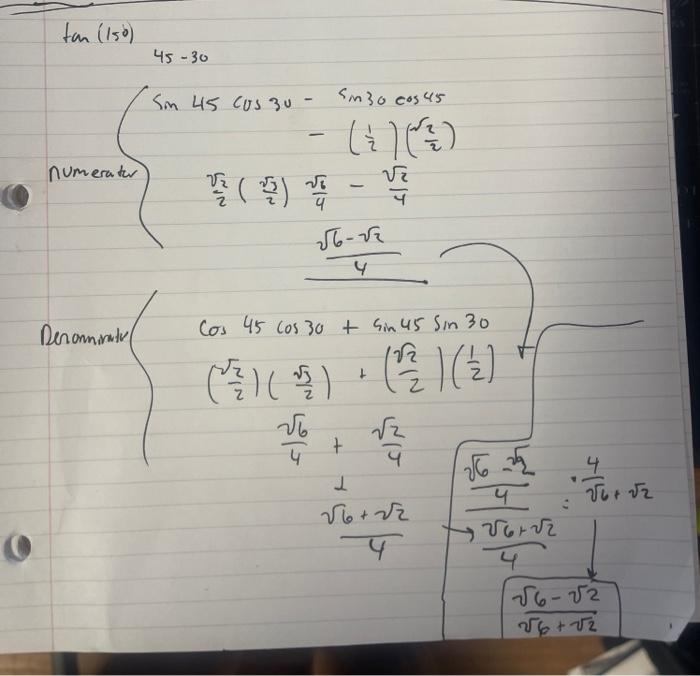 tan (15°)
45 - 30
Sin 45 cos 30 - Sin 30 cos 45
- (1/2)(√2/2)
numerator
√2/2 (√3/2) √6/4 - √2/4
(√6-√2)/4
Denominator
Cos 45 cos 30 + Sin 45 Sin 30
(√2/2)(√3/2) + (√2/2)(1/2)
√6/4 + √2/4
(√6+√2)/4
((√6-√2)/4)/((√6+√2)/4) = · 4/(√6+√2)
(√6-√2)/(√6+√2)